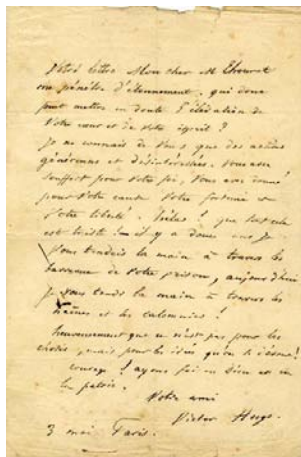 Votre lettre Mon cher M
me pénètre d'étonnement. qui donc
peut mettre en doute l'élévation de
votre cœur et de votre esprit ?
je ne connais de vous que des actions
généreuses et désintéressées. vous avez
souffert pour votre foi, vous avez donné
pour votre cause votre fortune et
votre liberté. que
est triste il y a douze ans je
vous tendais la main à travers les
barreaux de votre prison, aujourd'hui
je vous tends la main à travers les
haines et les calomnies !
heureusement que ce n'est pas pour les
mais pour les idées qu'on
courage ! ayons foi en Dieu et en
la patrie.
Votre ami
Victor Hugo
3 mai Paris.